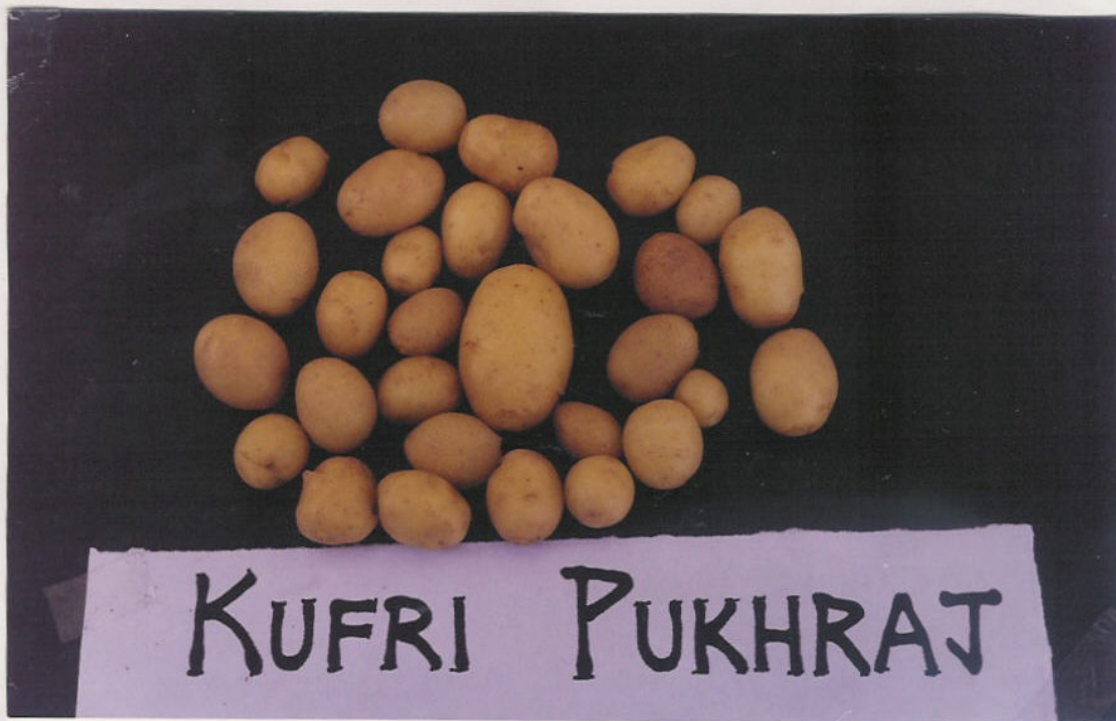 KUFRI PUKHRAJ